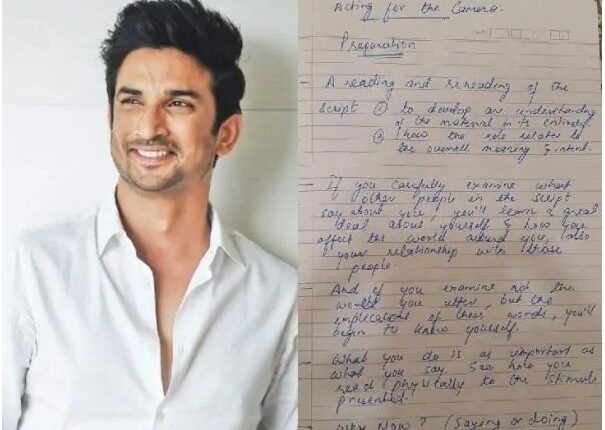 Acting for the Camera.
Preparation
A reading and rereading of the
script ① to develop an understanding
of the material in its entirety.
② how the role relates to
the overall meaning & intent.
If you carefully examine what
other people in the script
say about you, you'll learn a great
deal about yourself & how you
affect the world around you, also
your relationship with those
people.
And if you examine not the
words you utter, but the
implications of those words, you'll
begin to know yourself.
What you do is as important as
what you say. See how you
physically to the stimuli
presented.
Why Now? (Saying or doing)